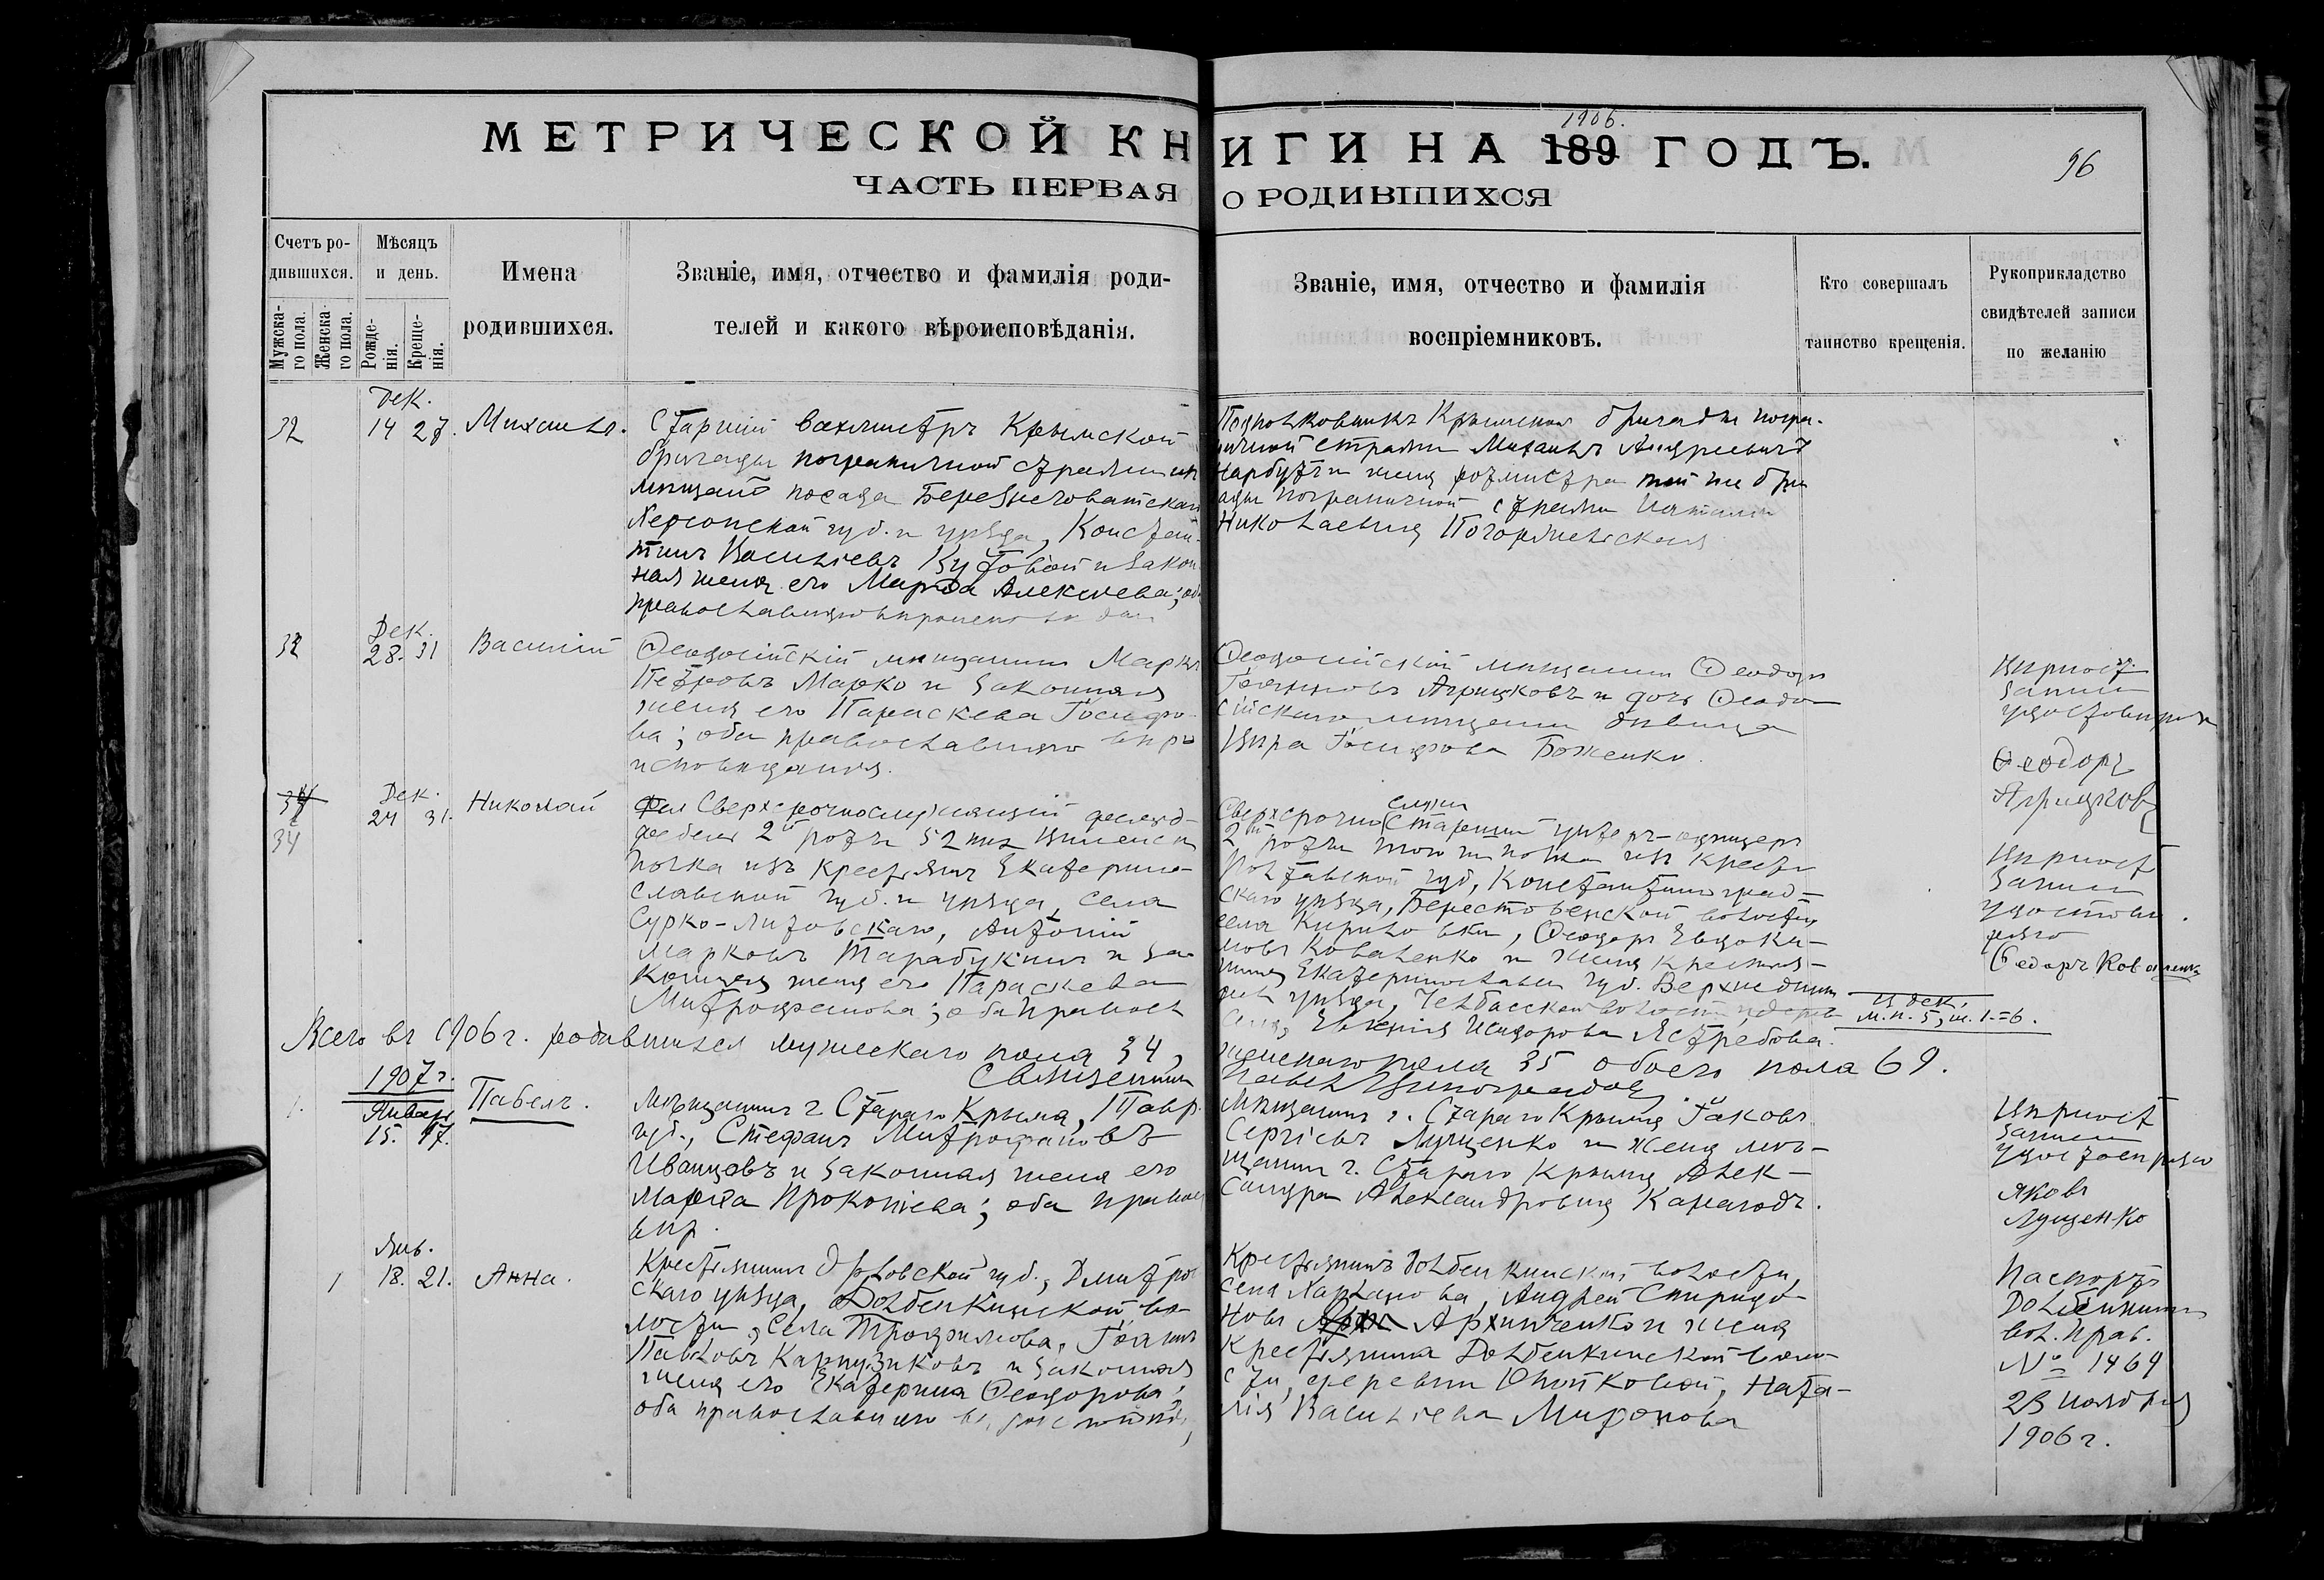 МЕТРИЧЕСКОЙ КНИГИ НА 189 ГОДЪ.
1906.
96
ЧАСТЬ ПЕРВАЯ О РОДИВШИХСЯ
Счетъ ро-
дившихся.
Мужска-
го пола.
Женска
го пола.
Мѣсяцъ
и день.
Рожде-
нія.
Креще-
нія.
Имена
родившихся.
Званіе, имя, отчество и фамилія роди-
телей и какого вѣроисповѣданія.
Званіе, имя, отчество и фамилія
воспріемниковъ.
Кто совершалъ
таинство крещенія.
Рукоприкладство
свидѣтелей записи
по желанію
Дек.
32 14 27. Михаилъ.
Старшій вахмистръ Крымской
бригады пограничной стражи
мѣщан. посада Березнеговатскаго
Херсонской губ. и уѣзда, Констан-
тинъ Васильевъ Кутовой и закон
ная жена его Марѳа Алексѣева;
православнаго
Подполковникъ Крымской бригады погра-
ничной стражи Михаилъ Андреевичъ
Нарбутъ и жена ротмистра той же бри
гады пограничной стражи Наталія
Николаевна
Дек.
32 28. 31 Василій
Ѳеодосійскій мѣщанинъ Маркъ
Петровъ Марко и законная
жена его Параскева Іосифо-
ва; оба православнаго вѣро
исповѣданія.
Ѳеодосійскій мѣщанинъ Ѳеодоръ
Іоанновъ Агрицковъ и дочь Ѳеодо
сійскаго мѣщанина дѣвица
Вѣра Іосифова Боженко.
Вѣрност.
записи
удостовѣряю
Ѳеодоръ
Агрицковъ
Дек.
34 24 31. Николай
34
Сверхсрочнослужащій фельд-
фебель 2й роты 52 пѣх Виленск
полка изъ крестьянъ Екатерино-
славской губ. и уѣзда, села
Сурко-Литовскаго, Антоній
Марковъ Тарабукинъ и за-
конная жена его Параскева
Митрофанова; оба правосл
Сверхсрочно служ старшій унтеръ-офицеръ
2й роты того же полка изъ крестьянъ
Полтавской губ, Константиноград-
скаго уѣзда, Берестовенской волости,
села Кириловки, Ѳеодоръ Евдоки-
мовъ Коваленко и жена крестья-
нина Екатеринослав губ. Верхнеднѣпр
уѣзда,
Евгенія Исидорова Ястребова.
Вѣрност
записи
удостовѣ
ряю
Ѳедоръ Коваленко
дек.
м.п. 5, ж. 1. = 6.
Всего въ 1906 г. родившихся мужескаго пола 34,
женскаго пола 35 обоего пола 69.
Священникъ
Павелъ Виноградовъ.
1907 г.
Январь
1. 15. 17. Павелъ.
Мѣщанинъ г. Стараго Крыма, Тавр.
губ., Стефанъ Митрофановъ
Иванцовъ и законная жена его
Марѳа Прокопіева; оба правосл
вѣр.
Мѣщанинъ г. Стараго Крыма Іаковъ
Сергіевъ Лущенко и жена мѣ-
щанина г. Стараго Крыма Алек-
сандра Александровна Карагодъ.
Вѣрност
записи
удостовѣряю
Яковъ
Лущенко
Янв.
1 18. 21. Анна.
Крестьянинъ Орловской губ., Дмитров
скаго уѣзда, Долбенкинской во-
лости, села Трофимова, Іоаннъ
Павловъ Карпузиковъ и законная
жена его Екатерина Ѳеодорова;
оба православнаго
Крестьянинъ Долбенкинской волости,
села Харланова, Андрей Спиридо-
новъ Архипченко и жена
крестьянина Долбенкинской воло-
сти, деревни, Ната-
лія Васильева Миронова
Паспортъ
Долбенкин
вол. прав.
№ 1469
28 ноября
1906 г.